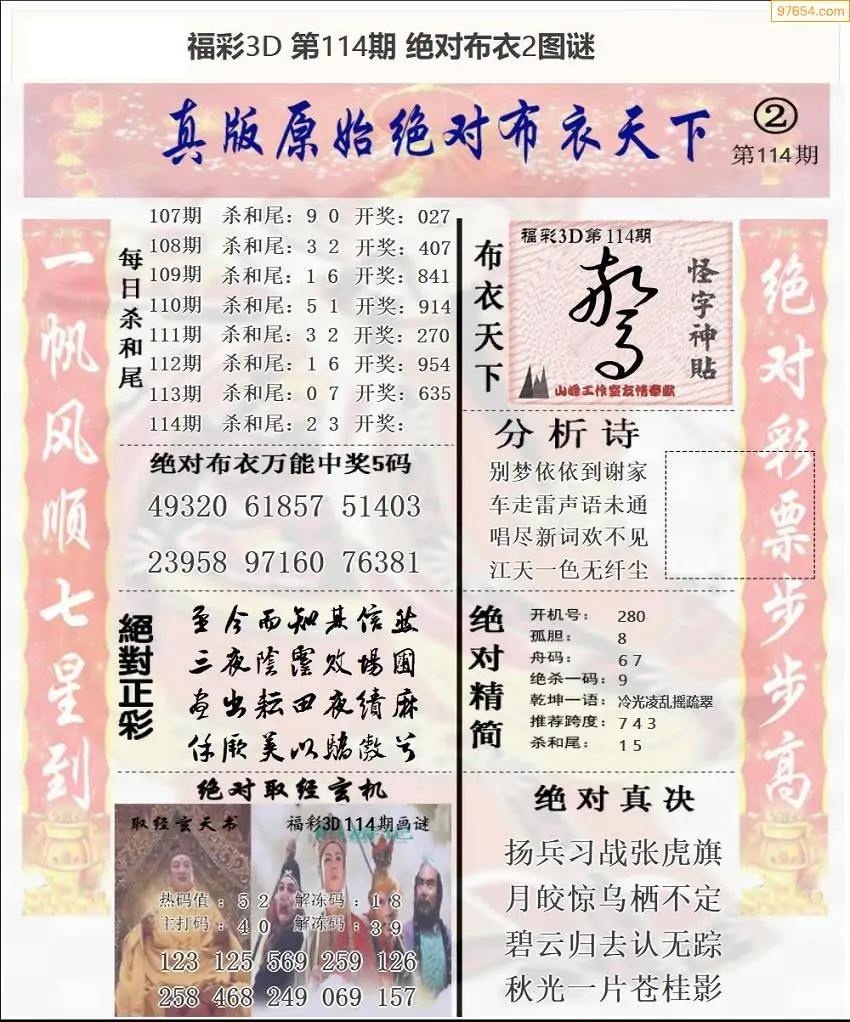 97654.com
福彩3D 第114期 绝对布衣2图谜
真版原始绝对布衣天下
②
第114期
一帆风顺七星到
每日杀和尾
107期 杀和尾：9 0 开奖：027
108期 杀和尾：3 2 开奖：407
109期 杀和尾：1 6 开奖：841
110期 杀和尾：5 1 开奖：914
111期 杀和尾：3 2 开奖：270
112期 杀和尾：1 6 开奖：954
113期 杀和尾：0 7 开奖：635
114期 杀和尾：2 3 开奖：
绝对布衣万能中奖5码
49320 61857 51403
23958 97160 76381
絕對正彩
至今而知其信然
三夜陰靈敗場圃
昼出耘田夜績麻
任厥美以驕敖兮
绝对取经玄机
取经玄天书
福彩3D114期画谜
热码值：5 2 解冻码：1 8
主打码：4 0 解冻码：3 9
123 125 569 259 126
258 468 249 069 157
布衣天下
福彩3D第114期
怪字神貼
山峰工作室友情奉献
分析诗
别梦依依到谢家
车走雷声语未通
唱尽新词欢不见
江天一色无纤尘
绝对精简
开机号： 280
孤胆： 8
舟码： 6 7
绝杀一码：9
乾坤一语：冷光凌乱摇疏翠
推荐跨度：7 4 3
杀和尾： 1 5
绝对真决
扬兵习战张虎旗
月皎惊乌栖不定
碧云归去认无踪
秋光一片苍桂影
绝对彩票步步高